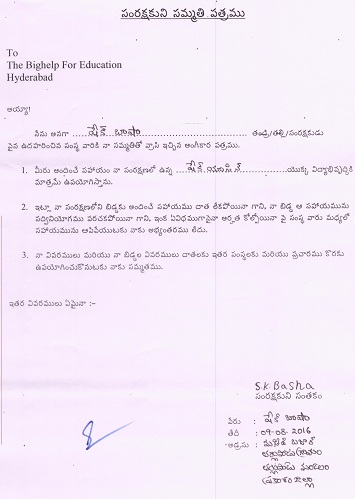 సంరక్షకుని సమ్మతి పత్రము
To
The Bighelp For Education
Hyderabad
అయ్యా!
నేను అనగా షేక్ బాషా తండ్రి/తల్లి/సంరక్షకుడు
పైన ఉదహరించిన సంస్థ వారికి నా సమ్మతితో వ్రాసి ఇచ్చిన అంగీకార పత్రము.
1. మీరు అందించే సహాయం నా సంరక్షణలో ఉన్న షేక్ యొక్క విద్యాభివృద్ధికి
మాత్రమే ఉపయోగిస్తాను.
2. ఇట్లా నా సంరక్షణలోని బిడ్డకు అందించే సహాయము దాత లేకపోయినా గాని, నా బిడ్డ ఆ సహాయమును
సద్వినియోగము పరచకపోయినా గాని, ఇంక ఏవిధముగానైనా అర్హత కోల్పోయినా పై సంస్థ వారు మధ్యలో
సహాయమును ఆపివేయుటకు నాకు అభ్యంతరము లేదు.
3. నా వివరములు మరియు నా బిడ్డల వివరములు దాతలకు ఇతర సంస్థలకు మరియు ప్రచారము కొరకు
ఉపయోగించుకొనుటకు నాకు సమ్మతము.
ఇతర వివరములు ఏమైనా :-
S.K Basha
సంరక్షకుని సంతకం
పేరు : షేక్ బాషా
తేది : 09-08-2016
అడ్రసు : బజార్
తర్లుపాడు గ్రామం
తర్లుపాడు మండలం
ప్రకాశం జిల్లా